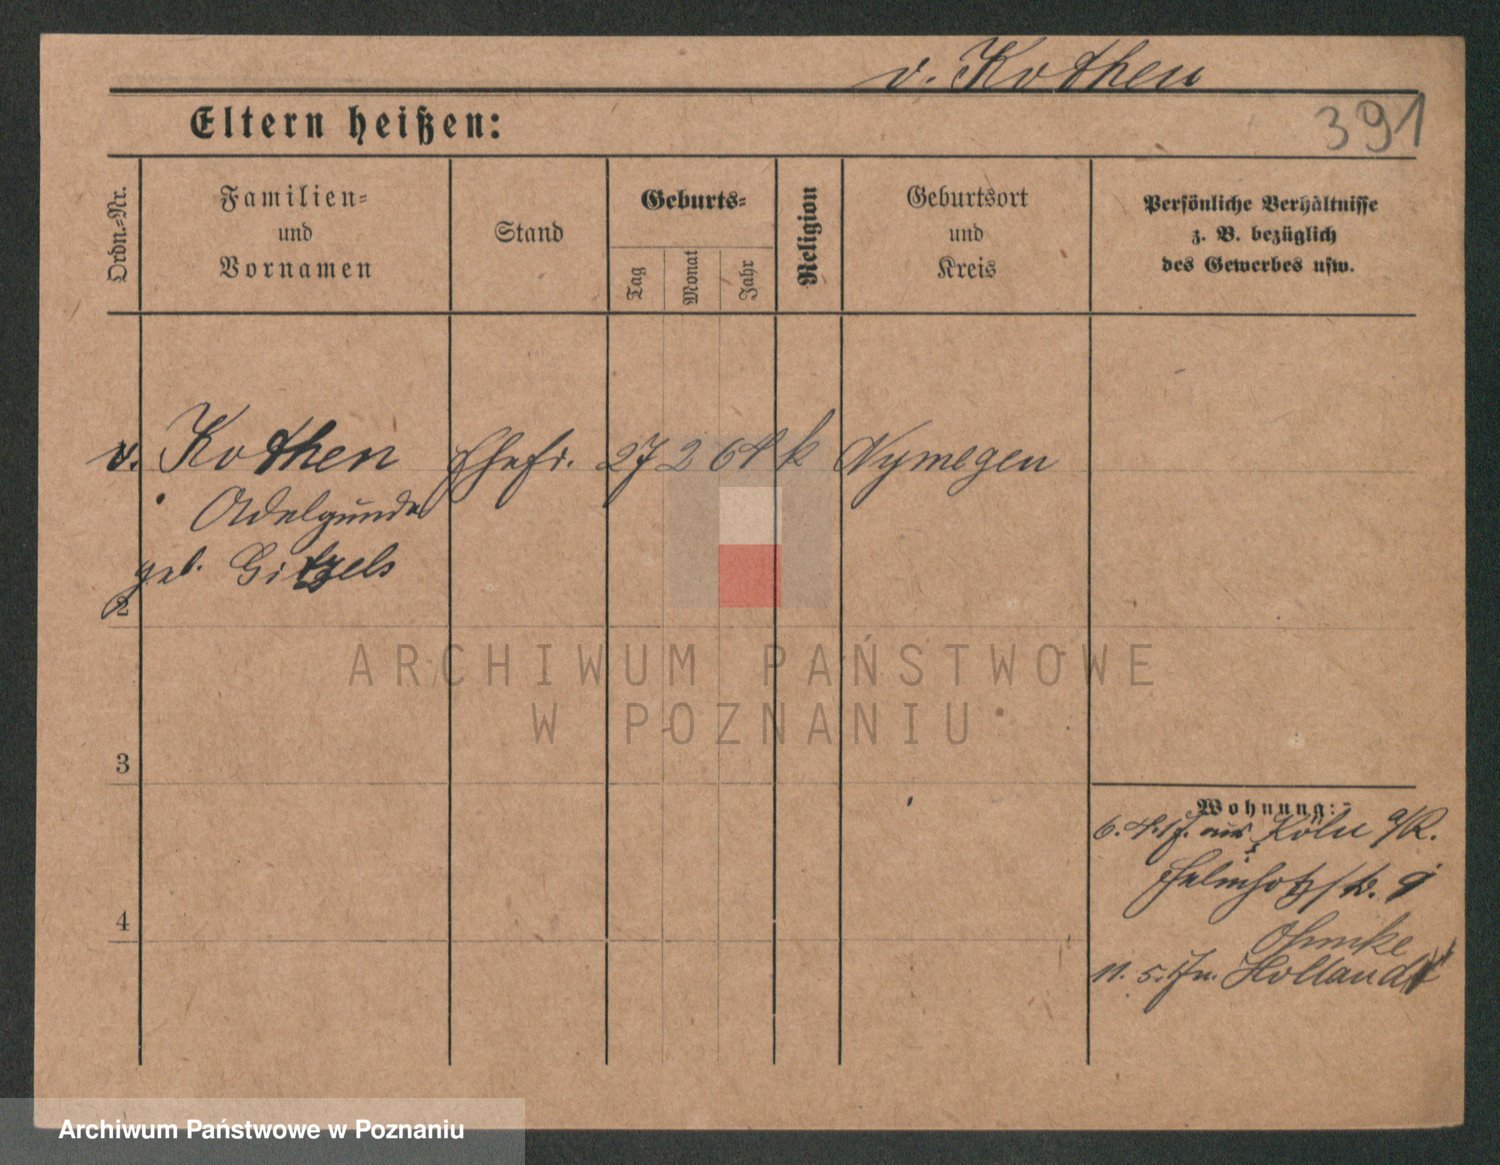 v. Kothen
391
Eltern heißen:
Ordn.-Nr.
Familien-
und
Vornamen
Stand
Geburts-
Tag
Monat
Jahr
Religion
Geburtsort
und
Kreis
Persönliche Verhältnisse
z. B. bezüglich
des Gewerbes usw.
v. Kothen Ehefr. 27 2 64 k Nymegen
Adelgunde
geb. Gitzels
2
3
4
Wohnung:
6. 4. aus Köln a/R.
9
Ohmke
11. 5. Holland
ARCHIWUM PAŃSTWOWE
W POZNANIU
Archiwum Państwowe w Poznaniu